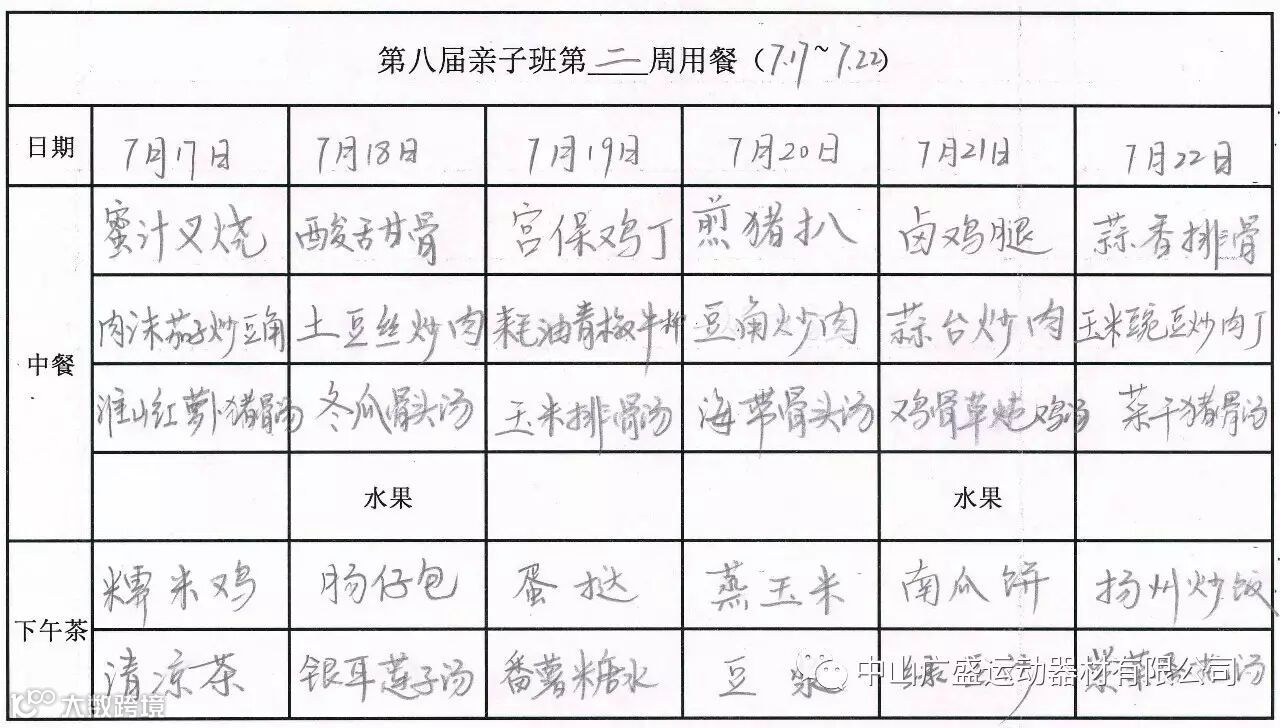 第八届亲子班第二周用餐（7.17~7.22）
日期 7月17日 7月18日 7月19日 7月20日 7月21日 7月22日
中餐
蜜汁叉烧 酸甜骨 宫保鸡丁 煎猪扒 卤鸡腿 蒜香排骨
肉沫茄子炒豆角 土豆丝炒肉 耗油青椒牛柳 豆角炒肉 蒜台炒肉 玉米豌豆炒肉丁
淮山红萝卜猪骨汤 冬瓜骨头汤 玉米排骨汤 海带骨头汤 鸡骨草炖鸡汤 菜干猪骨汤
水果 水果
下午茶
糯米鸡 肠仔包 蛋挞 蒸玉米 南瓜饼 扬州炒饭
清凉茶 银耳莲子汤 番薯糖水 豆浆 汤
中山 盛运动器材有限公司
100 大数跨境